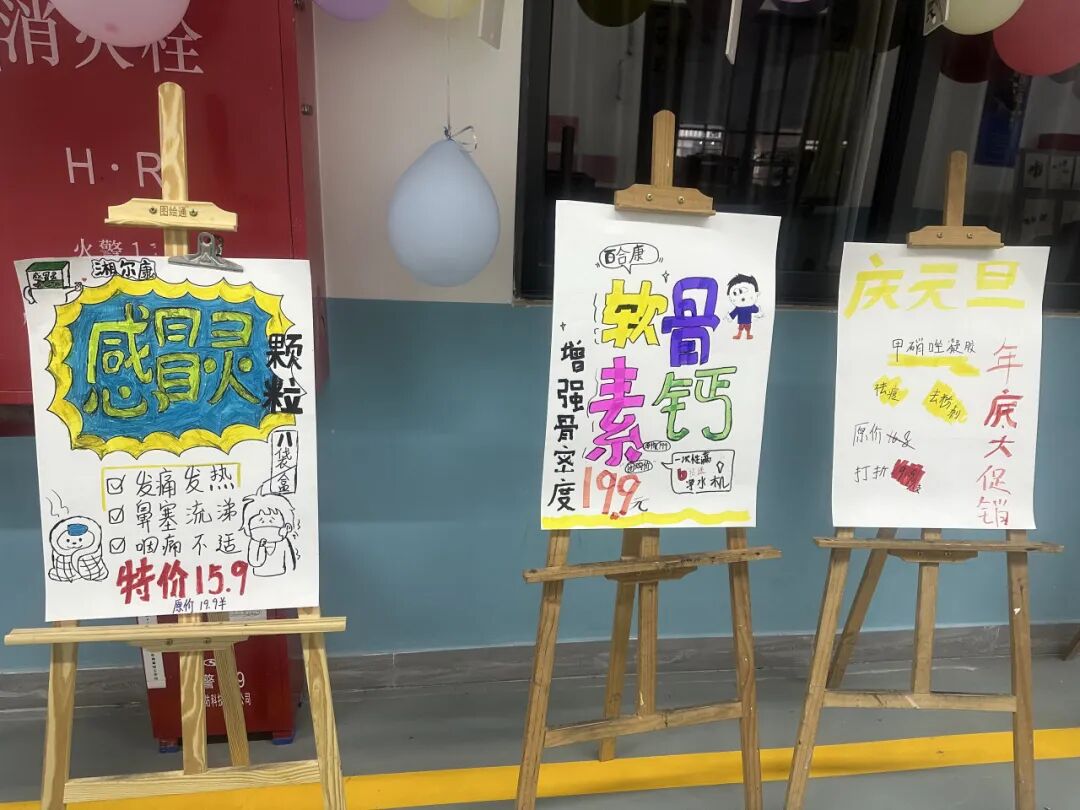 消火栓
H·R
火警11
图绘通
湘尔康
感冒灵
颗粒
八袋/盒
发痛发热
鼻塞流涕
咽痛不适
特价15.9
原价 19.9
警 9
百合康
软骨
素钙
增强骨密度
199元
净水机
庆元旦
甲硝唑凝胶
祛痘
去粉刺
原价
打折
年底大促销